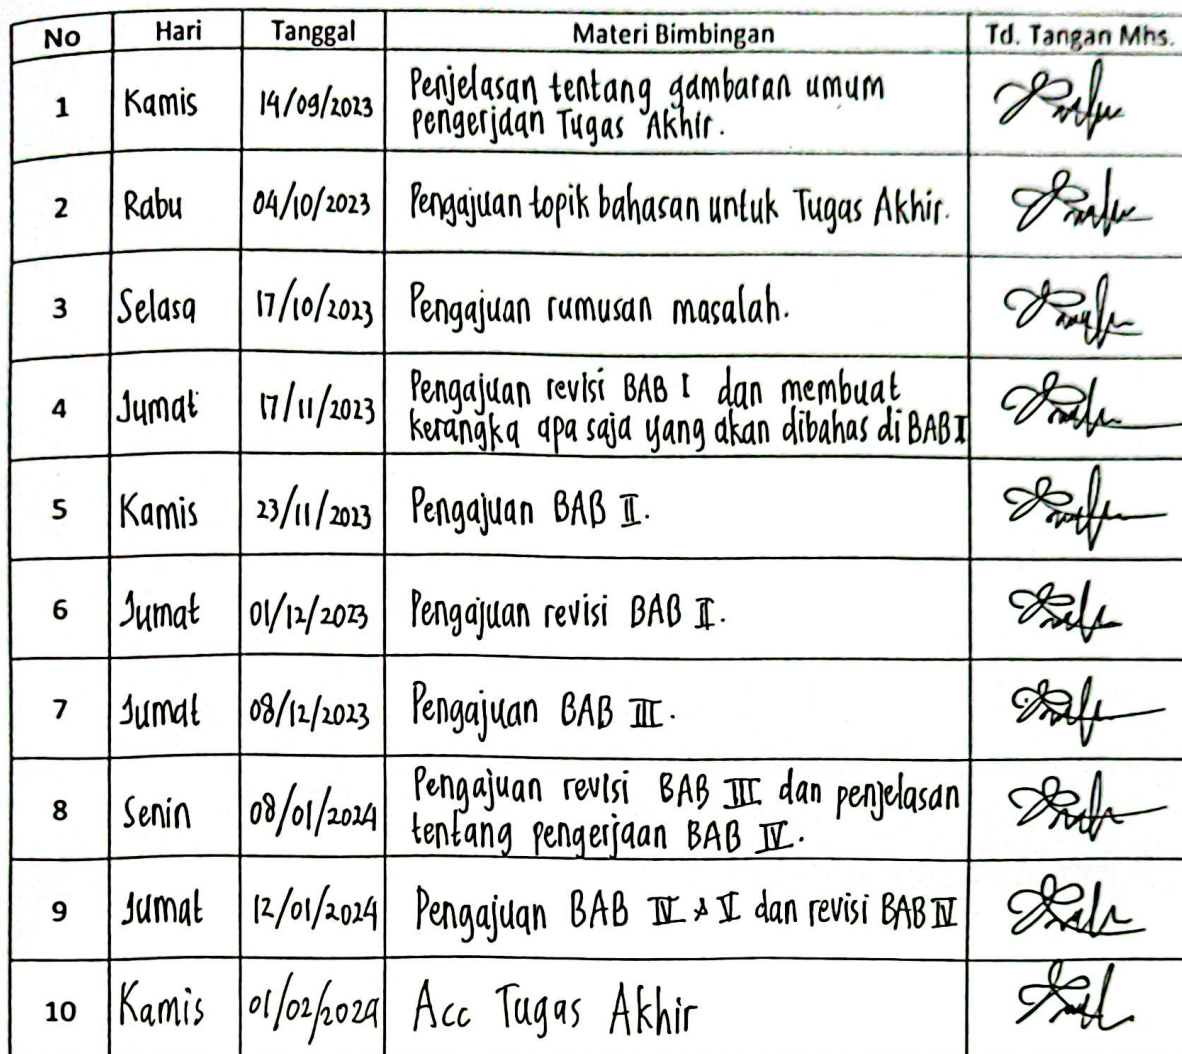 No Hari Tanggal Materi Bimbingan Td. Tangan Mhs.
1 Kamis 14/09/2023 Penjelasan tentang gambaran umum
pengerjaan Tugas Akhir.
2 Rabu 04/10/2023 Pengajuan topik bahasan untuk Tugas Akhir.
3 Selasa 17/10/2023 Pengajuan rumusan masalah.
4 Jumat 17/11/2023 Pengajuan revisi BAB I dan membuat
kerangka apa saja yang akan dibahas di BAB I
5 Kamis 23/11/2023 Pengajuan BAB II.
6 Jumat 01/12/2023 Pengajuan revisi BAB II.
7 Jumat 08/12/2023 Pengajuan BAB III.
8 Senin 08/01/2024 Pengajuan revisi BAB III dan penjelasan
tentang pengerjaan BAB IV.
9 Jumat 12/01/2024 Pengajuan BAB IV & V dan revisi BAB IV
10 Kamis 01/02/2024 Acc Tugas Akhir